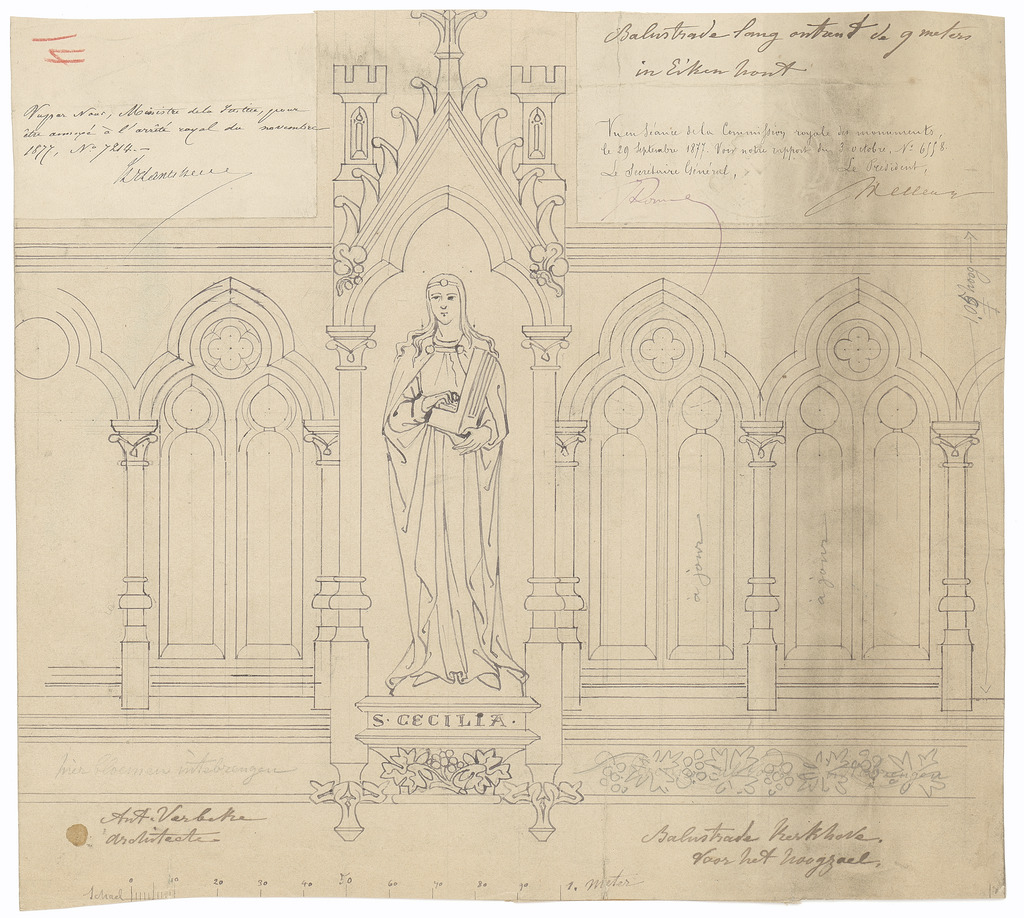 Balustrade lang ontrent de 9 meters
in Eiken hout
Vu par Nous, Ministre de la Justice, pour
être annexé à l'arrêté royal du novembre
1877, No 7214.-
Vu en séance de la Commission royale des monuments,
le 29 Septembre 1877. Voir notre rapport du 3 octobre, No 6558.
Le Secrétaire Général,
Le Président,
1.05 hoog
à jour
à jour
S · CECILIA ·
hier bloemen intebrengen
Ant. Verbeke
architecte
Balustrade Kerkhove.
Voor het hoogzael.
Schael 0 10 20 30 40 50 60 70 80 90 1. meter